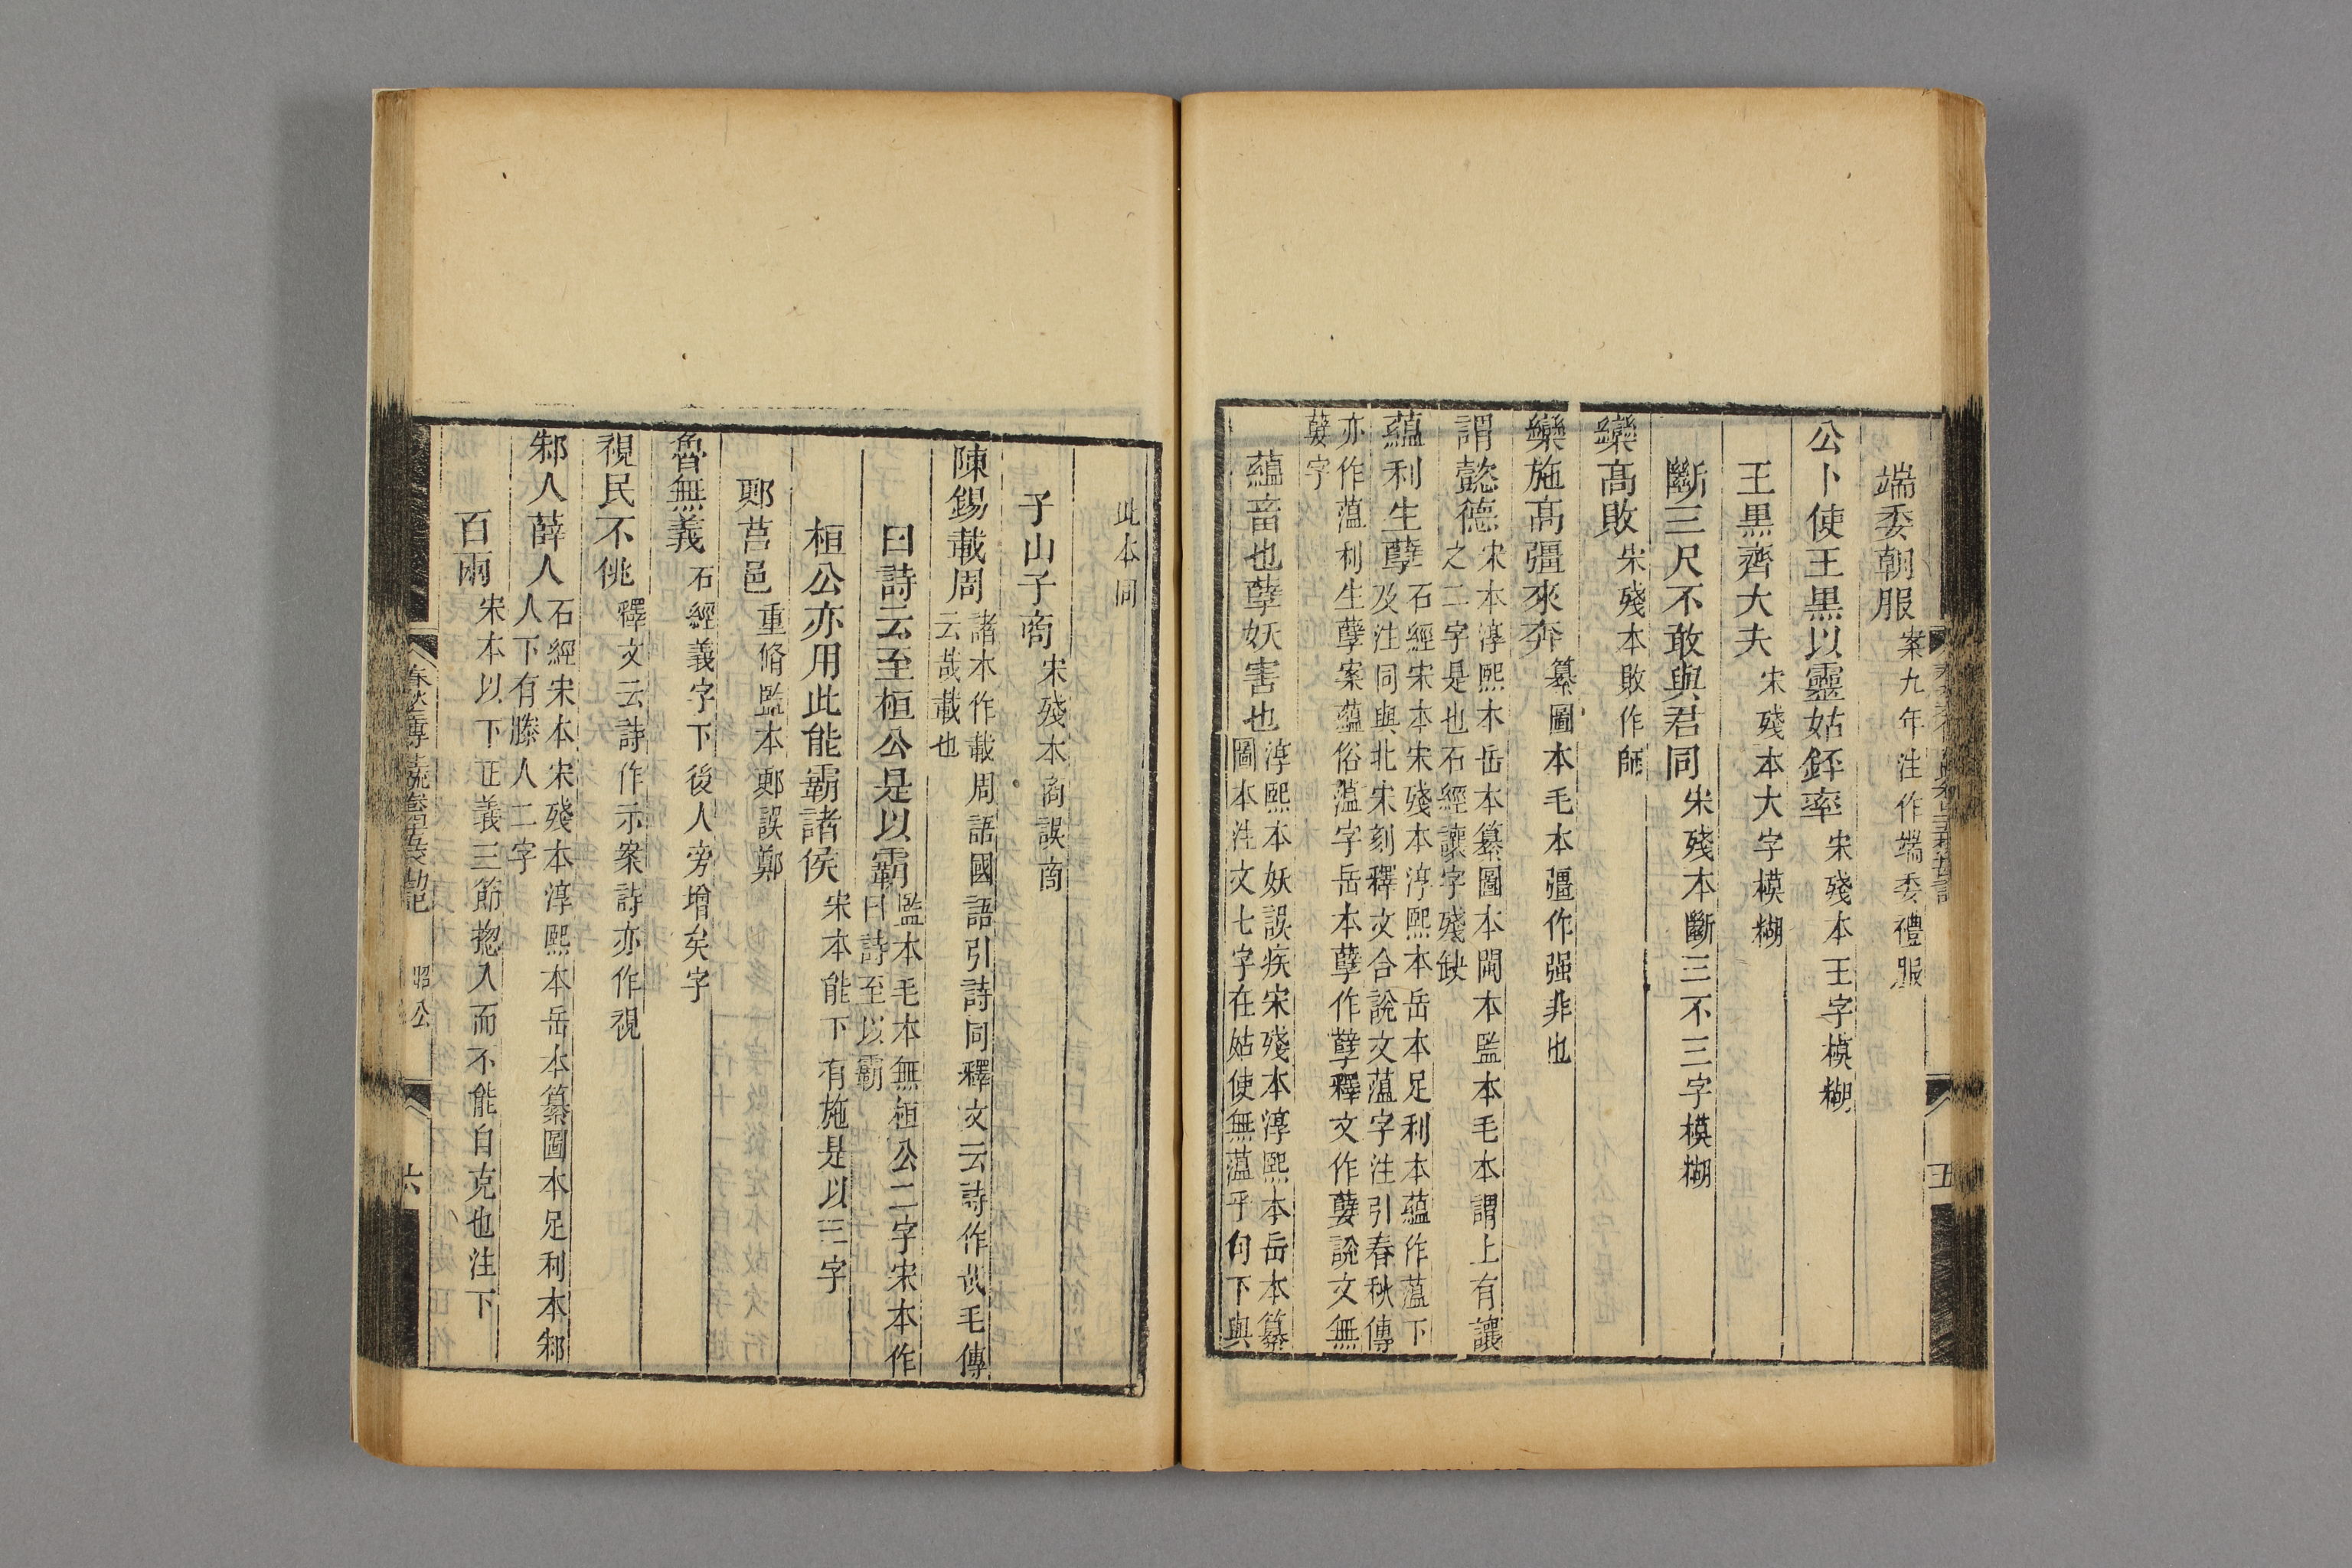 端委朝服案九年注作端委禮服
公卜使王黒以靈姑銔率宋殘本王字模糊
王黒齊大夫宋殘本大字模糊
斷三尺不敢與君同宋殘本斷三不三字模糊
欒髙敗宋殘本敗作師
欒施髙彊來奔纂圖本毛本彊作强非也
謂懿德宋本淳熙本岳本纂圖本閩本監本毛本謂上有讓
之二字是也石經讓字殘缺
蘊利生孽石經宋本宋殘本淳熙本岳本足利本蘊作薀下
及注同與北宋刻釋文合說文薀字注引春秋傳
亦作薀利生孽案蘊俗薀字岳本孽作孼釋文作蠥說文無
蠥字
蘊畜也孽妖害也淳熙本妖誤疾宋殘本淳熙本岳本纂
圖本注文七字在姑使無薀乎句下與
五
此本同
子山子啇宋殘本啇誤商
陳錫載周諸本作載周語國語引詩同釋文云詩作哉毛傳
云哉載也
曰詩云至桓公是以霸監本毛本無桓公二字宋本作
曰詩至以霸
桓公亦用此能霸諸侯宋本能下有施是以三字
鄓莒邑重脩監本鄓誤鄭
魯無義石經義字下後人旁增矣字
視民不佻釋文云詩作示案詩亦作視
邾人薛人石經宋本宋殘本淳熙本岳本纂圖本足利本邾
人下有滕人二字
百兩宋本以下正義三節揔入而不能自克也注下
昭公
六